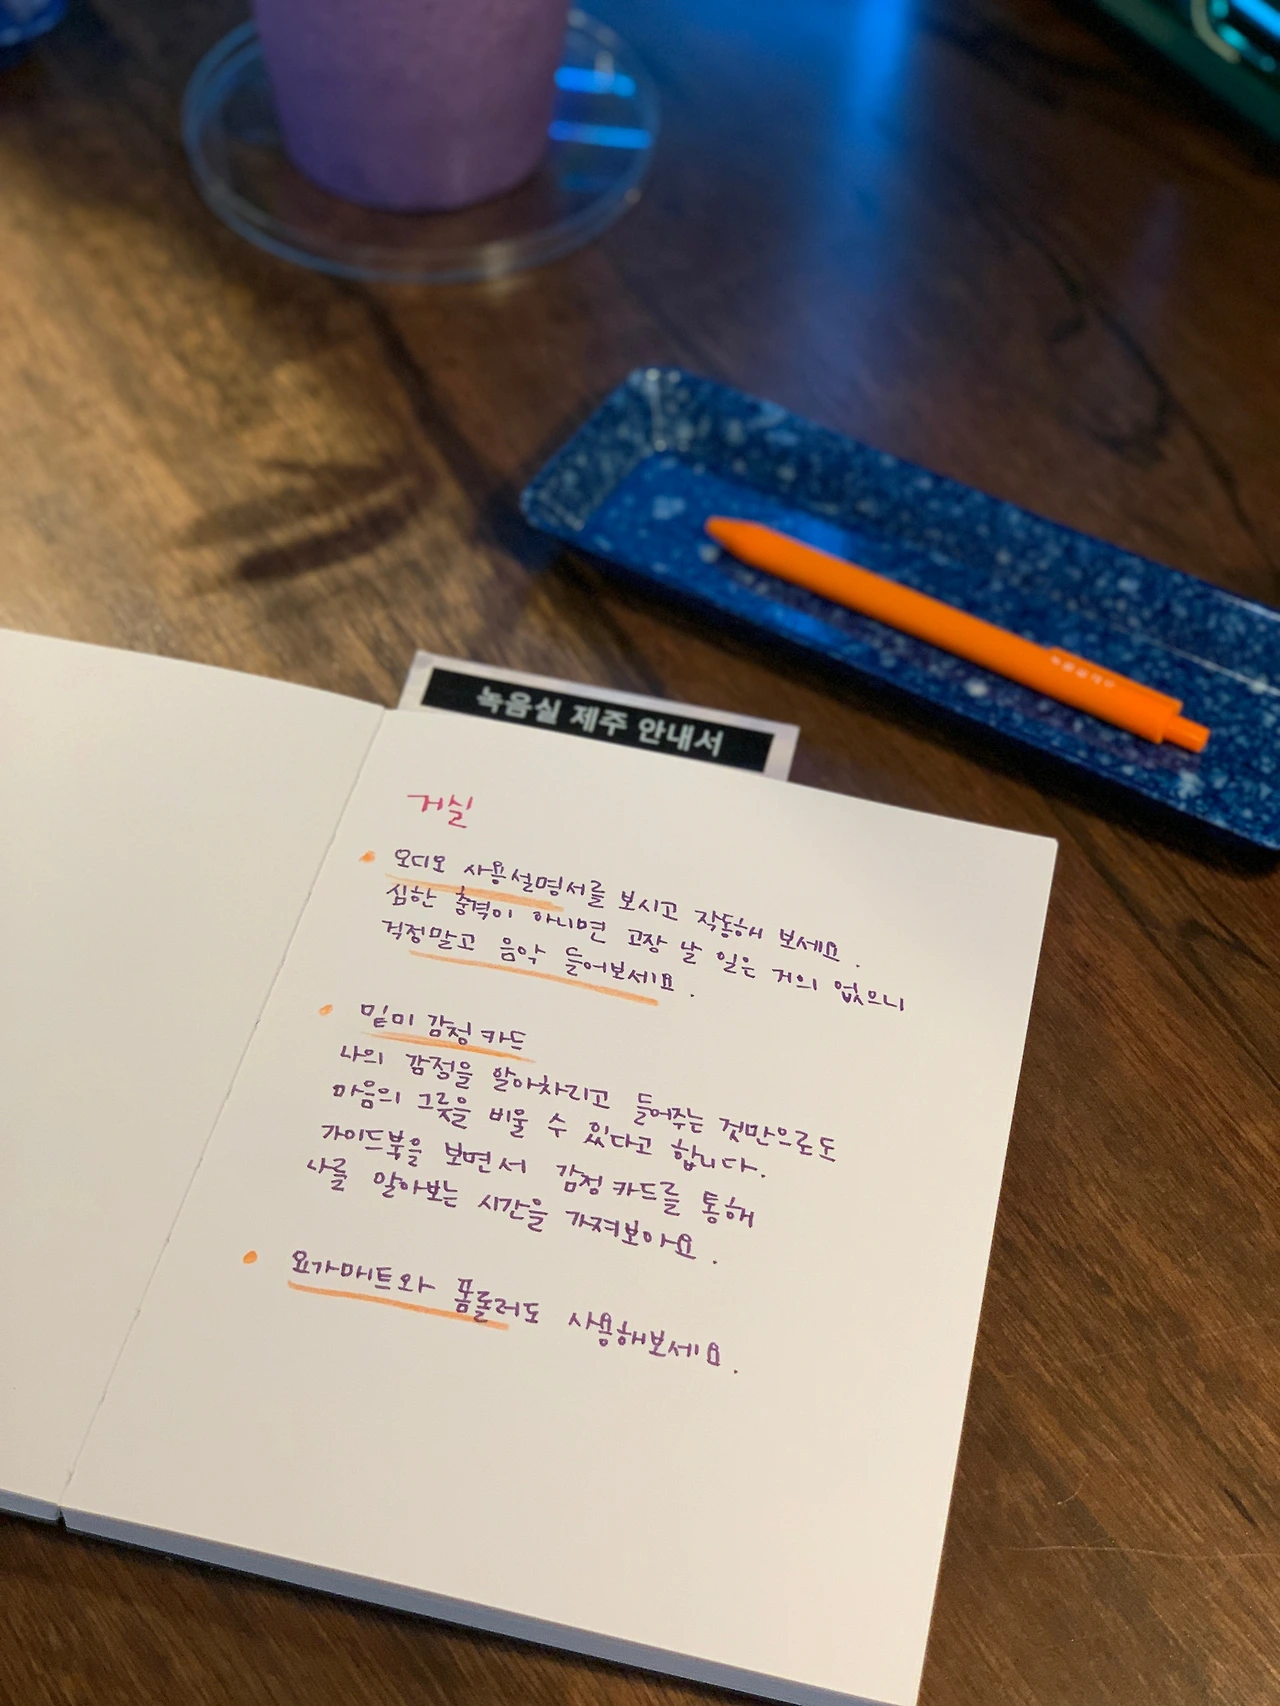 녹음실 제주 안내서
거실
오디오 사용설명서를 보시고 작동해 보세요.
심한 충격이 아니면 고장 날 일은 거의 없으니
걱정말고 음악 들어보세요.
밑미 감정 카드
나의 감정을 알아차리고 들어주는 것만으로도
마음의 그릇을 비울 수 있다고 합니다.
가이드북을 보면서 감정 카드를 통해
나를 알아보는 시간을 가져보아요.
요가매트와 폼롤러도 사용해보세요.